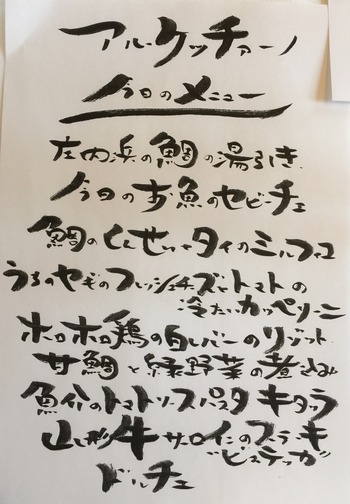 アル・ケッチァーノ
今日のメニュー
庄内浜の鯛の湯引き
今日のお魚のセビーチェ
鯛のくんせい タイのミルフユ
うちのヤギのフレッシュチーズとトマトの
冷たいカッペリーニ
ホロホロ鶏の白レバーのリゾット
甘鯛と緑野菜の煮込み
魚介のトマトソースパスタ キタッラ
山形牛サーロインのステーキ
"ビステッカ"
ドルチェ